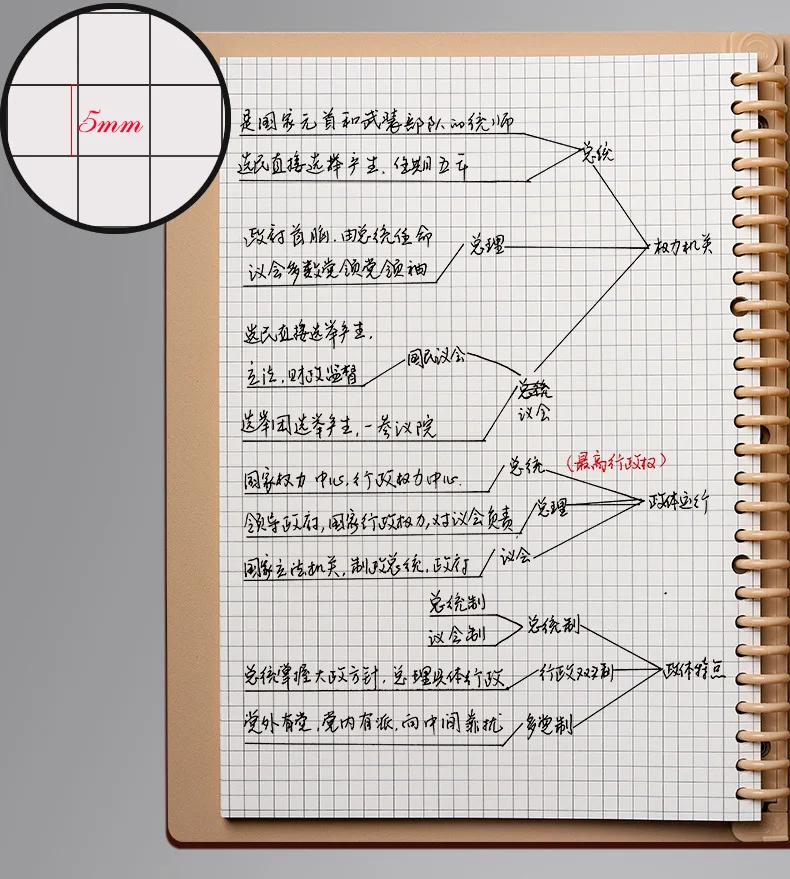 5mm
是国家元首和武装部队的统师
选民直接选举产生，任期五年
总统
政府首脑，由总统任命
议会多数党领党领袖
总理
权力机关
选民直接选举产生，
立法，财政监督
国民议会
总统
议会
选举团选举产生，一参议院
国家权力中心，行政权力中心.
总统
(最高行政权)
领导政府，国家行政权力，对议会负责
总理
政体运行
国家立法机关，制政总统，政府
议会
总统制
议会制
总统制
总统掌握大政方针，总理具体行政
行政双头制
政体特点
党外有党，党内有派，向中间靠拢
多党制